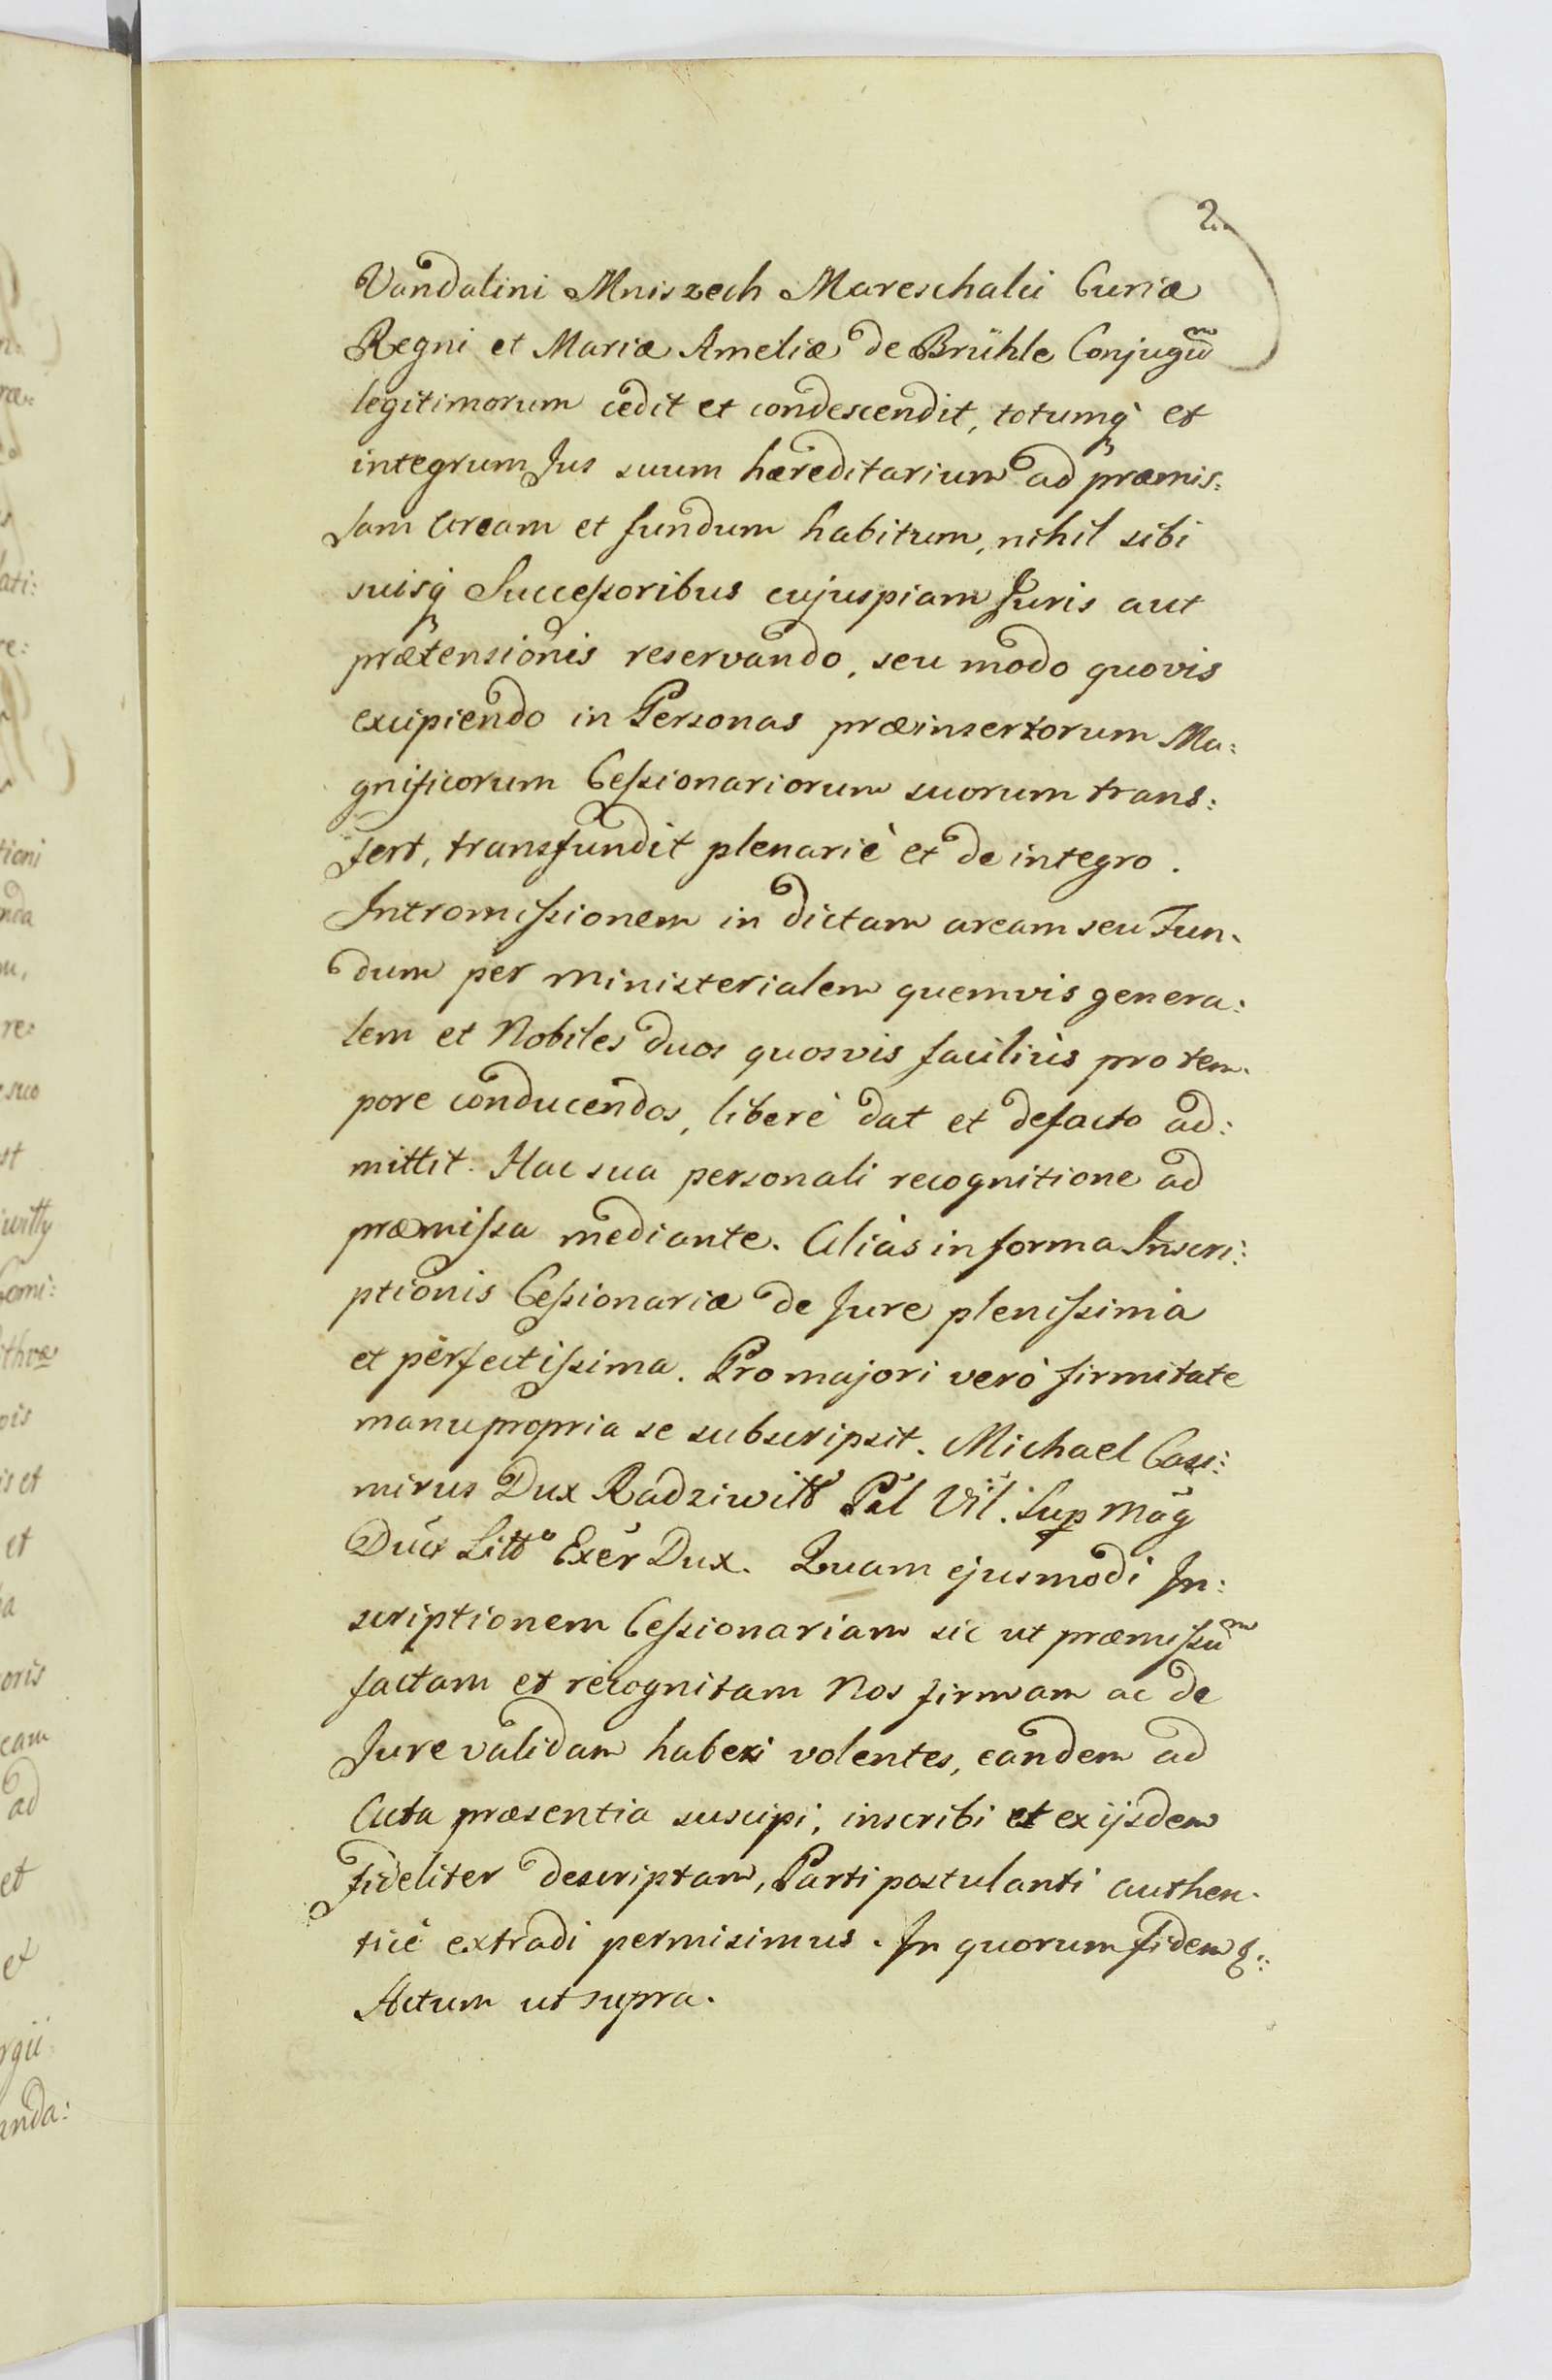 2.
Vandalini Mniszech Mareschalci Curiæ
Regni et Mariæ Ameliæ de Brühle Conjugũ
legitimorum cedit et condescendit, totumq́ et
integrum Jus suum hæreditarium ad præmis:
sam Aream et fundum habitum, nihil sibi
suisq́ Succeſsoribus cujuspiam Juris aut
prætensionis reservando, seu modo quovis
excipiendo in Personas præinsertorum Ma:
gnificorum Ceſsionariorum suorum trans:
fert, transfundit plenariè et de integro.
Intromiſsionem in dictam aream seu Fun-
dum per Ministerialem quemvis genera:
lem et Nobiles duos quosvis faciliùs pro tem-
pore conducendos, liberè dat et defacto ad:
mittit. Hac sua personali recognitione ad
præmiſsa mediante. Aliàs in forma Inscri:
ptionis Ceſsionariæ de Jure pleniſsima
et perfectiſsima. Pro majori verò firmitate
manu propria se subscripsit. Michael Casi:
mirus Dux Radziwiłł Pal Vil. Sup Mag
Duc Litt Exer Dux. Quam ejusmodi In:
scriptionem Ceſsionariam sic ut præmiſsũ
factam et recognitam Nos firmam ac de
Jure validam haberi volentes, eandem ad
Acta præsentia suscipi, inscribi et ex ijsdem
fideliter descriptam, Parti postulanti authen-
ticè extradi permisimus. In quorum fidem &:
Actum ut supra.